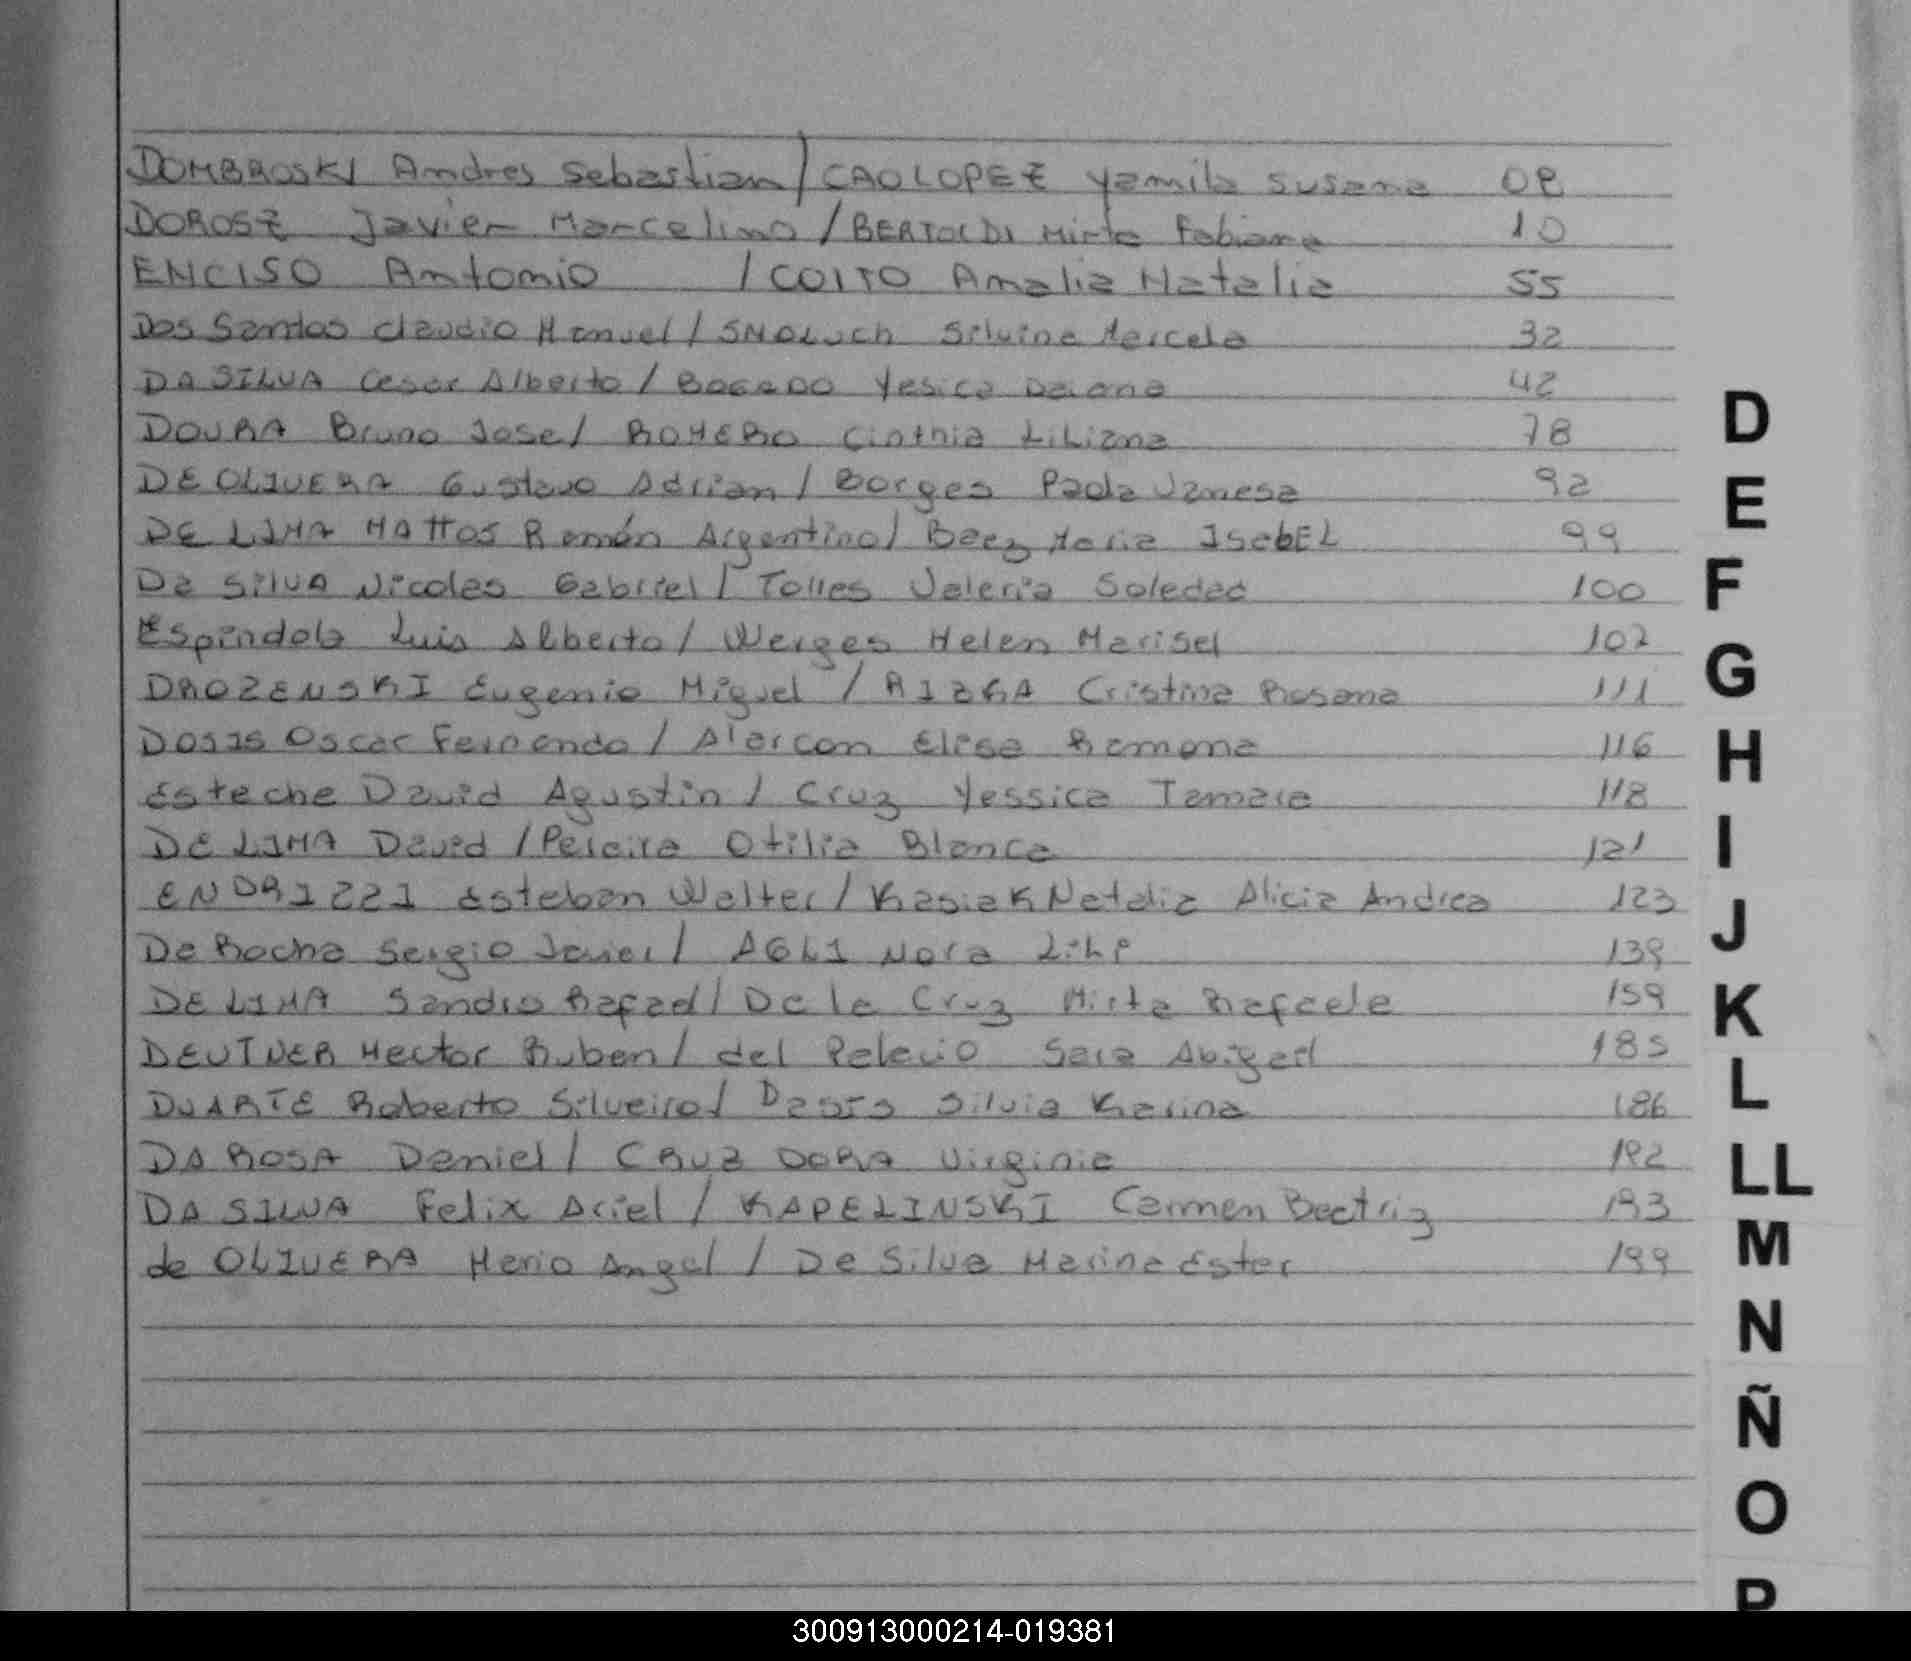 DOMBROSKI Andres Sebastian / CAOLOPEZ Yamila Susana 08
DOROSZ Javier Marcelino / BERTOLDI Mirta Fabiana 10
ENCISO Antonio / COITO Amalia Natalia 55
Dos Santos Claudio Manuel / SMOLUCH Silvina Marcela 32
DA SILVA Cesar Alberto / BOGADO Yesica Daiana 42
DOURA Bruno Jose / ROMERO Cinthia Liliana 78
DE OLIVERA Gustavo Adrian / Borges Paola Vanesa 92
DE LIMA MATTOS Ramón Argentino / Baez Maria ISabEL 99
Da SilVA Nicolas Gabriel / Tolles Valeria Soledad 100
Espindola Luis Alberto / Werges Helen Marisel 102
DROZENSKI Eugenio Miguel / RIZGA Cristina Rosana 111
Dosis Oscar Fernando / Alarcon Elisa Ramona 116
Esteche David Agustin / Cruz Yessica Tamara 118
DE LIMA David / Pereira Otilia Blanca 121
ENDRIZZI Esteban Walter / Kasiak Natalia Alicia Andrea 123
Da Rocha Sergio Javier / AGLI Nora 139
DE LIMA Sandro Rafael / De la Cruz Mirta Rafaela 159
DEUTNER Hector Ruben / del Sara Abigail 185
DUARTE Roberto Silveiro / Silvia Karina 186
DA ROSA Daniel / CRUZ DORA Virginia 192
DA SILVA Felix Ariel / KAPELINSKI Carmen Beatriz 193
de OLIVERA Mario Angel / Da Silva Marina Ester 199
D
E
F
G
H
I
J
K
L
LL
M
N
Ñ
O
P
300913000214-019381